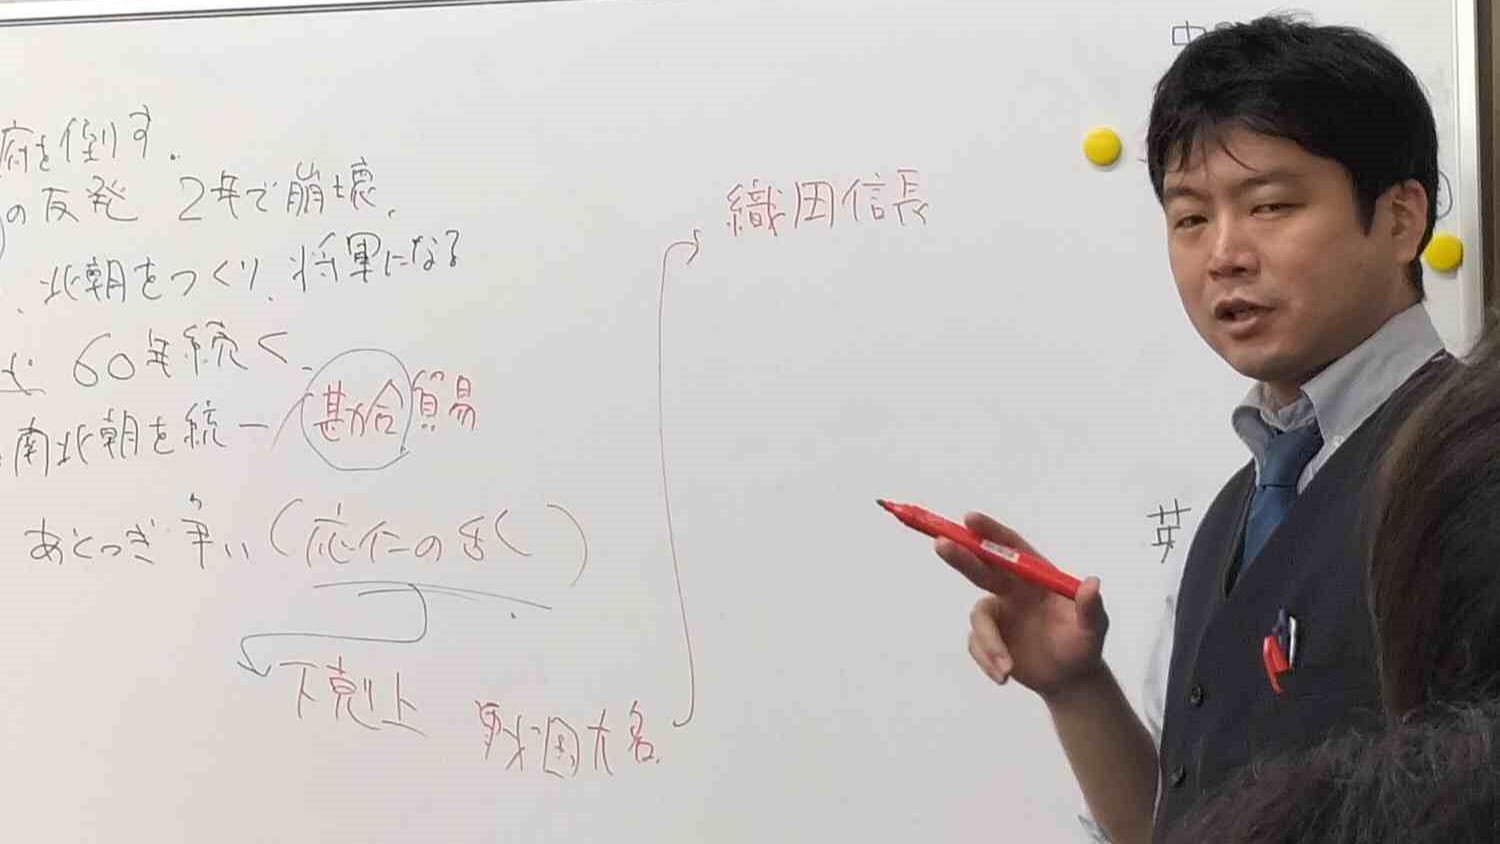 府を倒す.
の反発 2年で崩壊.
北朝をつくり. 将軍になる
60年続く.
南北朝を統一 勘合貿易
あとつぎ争い(応仁の乱)
下剋上
戦国大名
織田信長
中
英